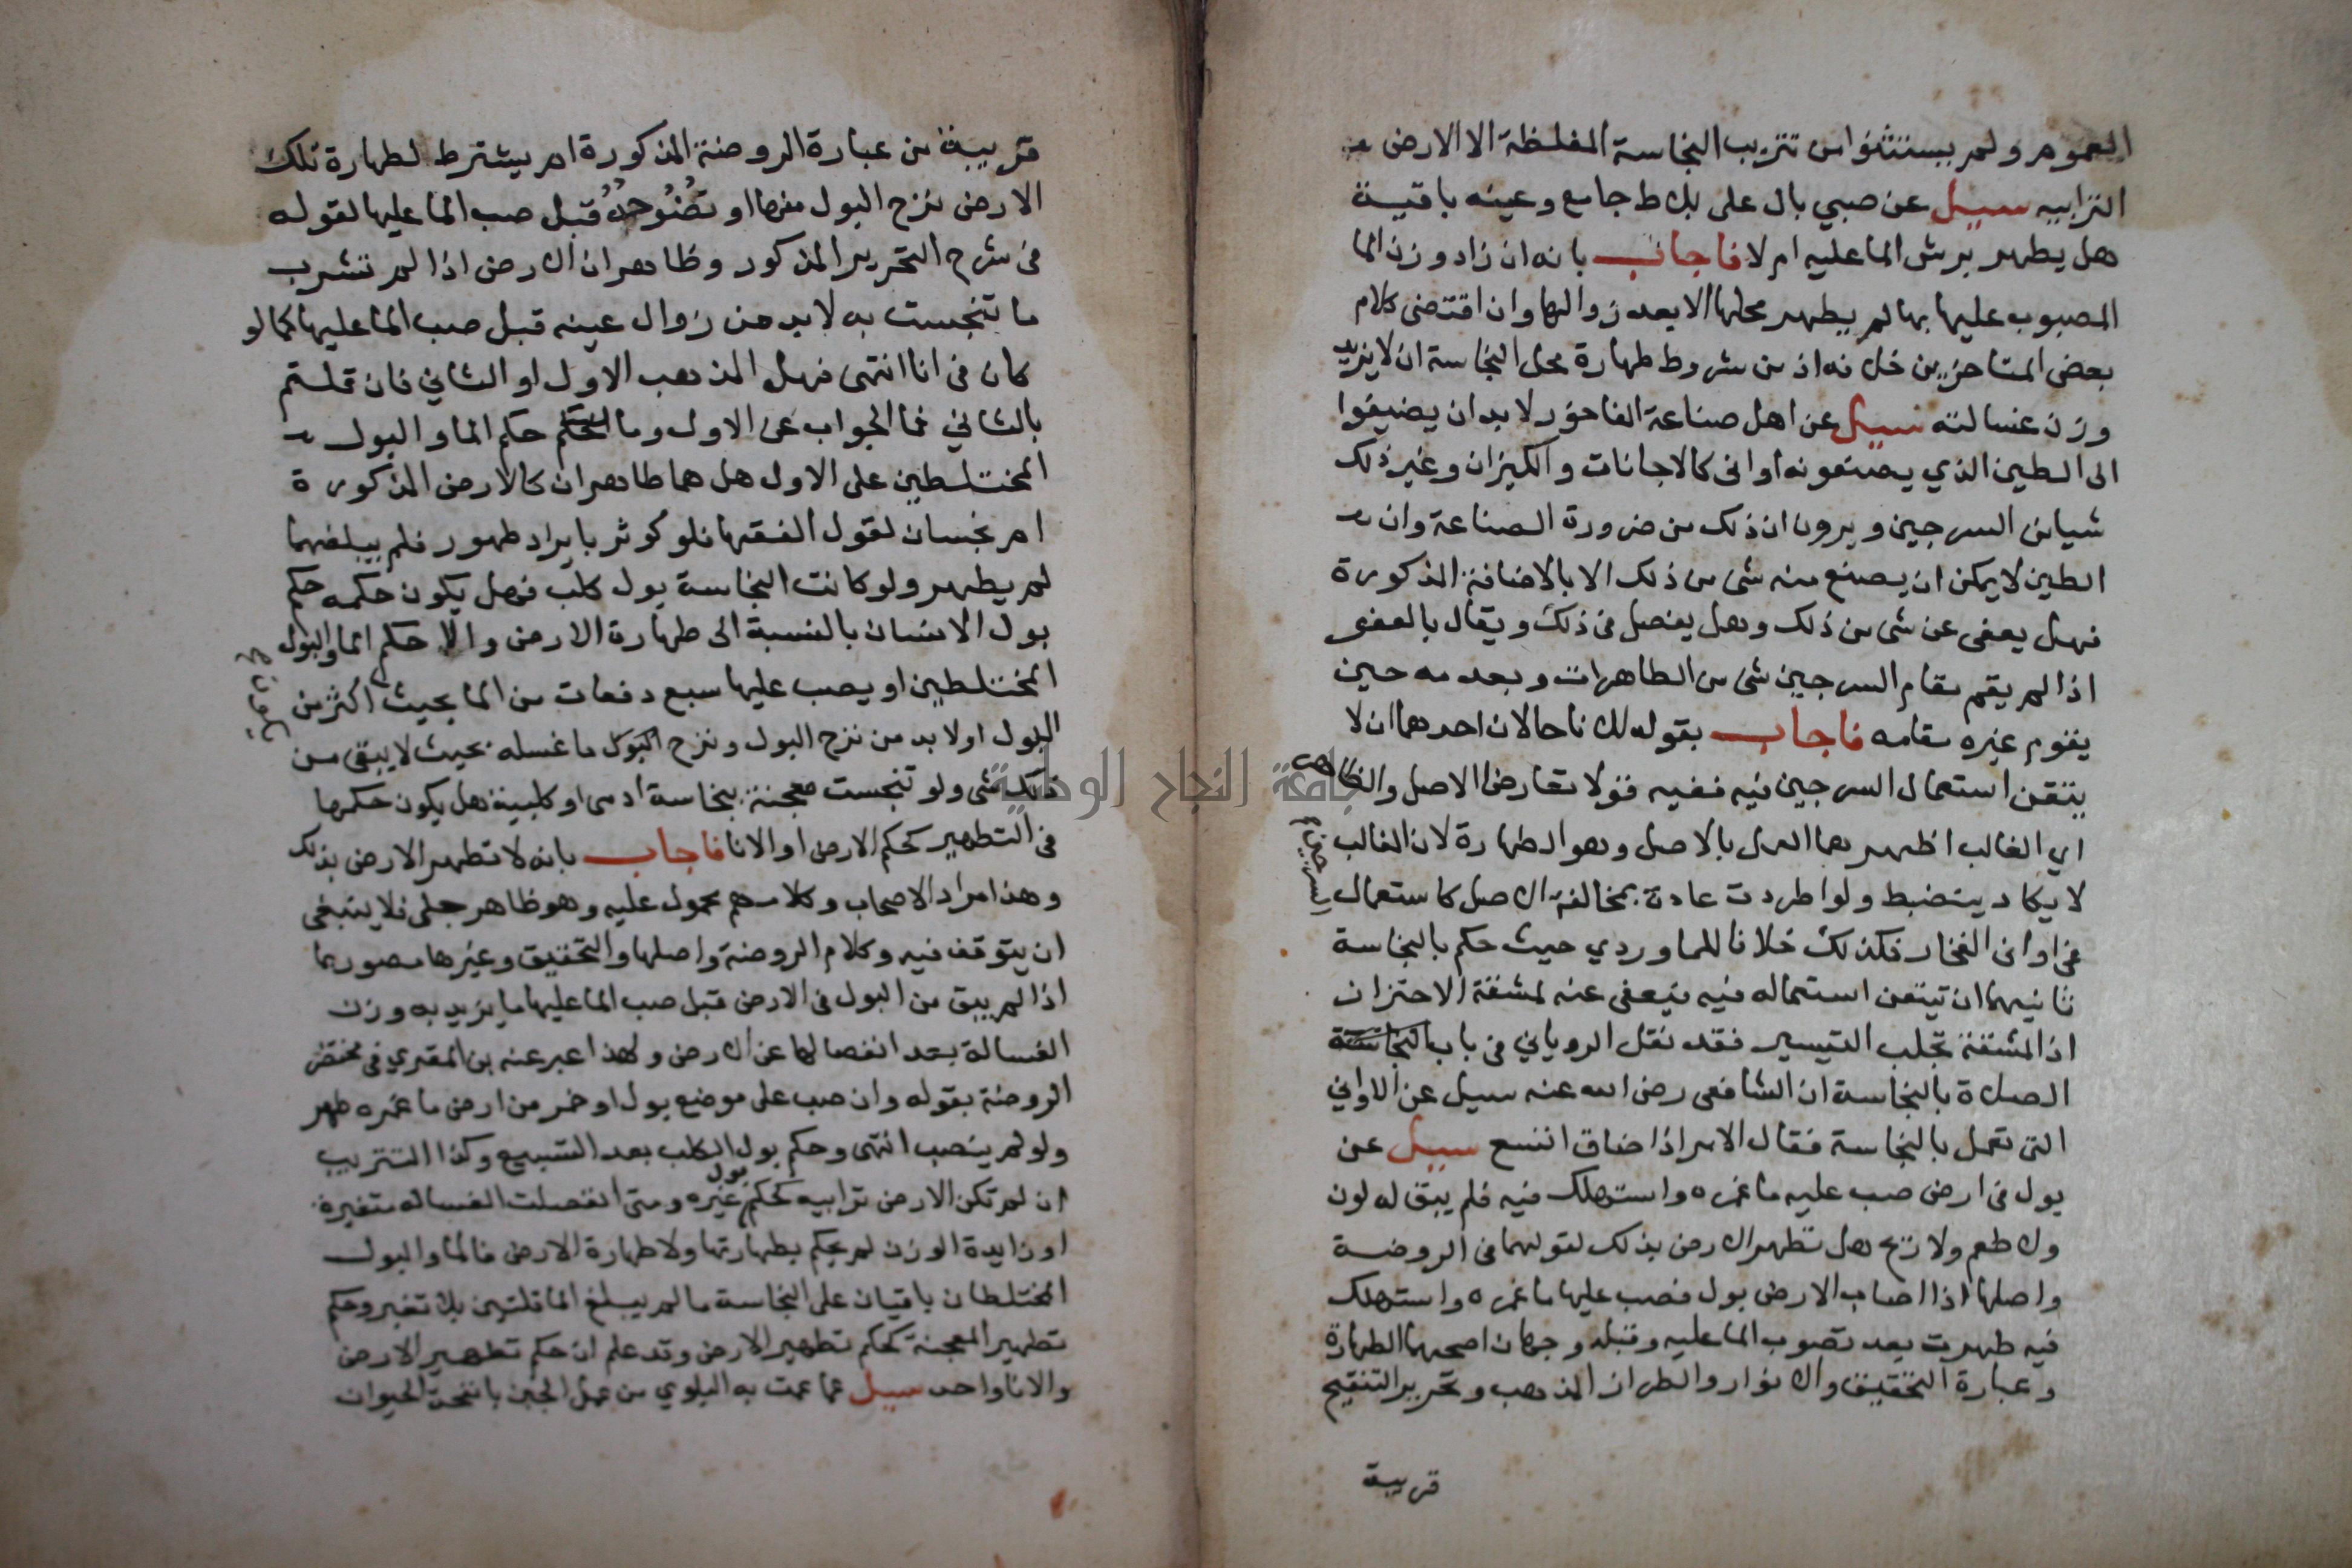 العموم ولم يستثنوا من تتريب النجاسة المغلظة الا الارض
الترابيه سييل عن صبي بال على بلاط جامع وعينه باقية
هل يطهر برش الما عليه ام لا فاجاب بانه ان زاد وزن الما
المصبوب عليها بها لم يطهر محلها الا بعد زوالها وان اقتضى كلام
بعض المتاخرين خلافه اذ من شروط طهارة محل النجاسة ان لا يزيد
وزن غسالته سييل عن اهل صناعة الفاخور لا بد ان يضيفوا
الى الطين الذي يصنعونه اوانى كالاجانات والكيزان وغير ذلك
شيا من السرجين ويرون ان ذلك من ضرورة الصناعة وان
الطين لا يمكن ان يصنع منه شى من ذلك الا بالاضافة المذكورة
فهل يعفى عن شى من ذلك وهل يفصل فى ذلك ويقال بالعفو
اذا لم يقم مقام السرجين شى من الطاهرات وبعدمه حين
يقوم غيره مقامه فاجاب بقوله لك ناحالان احدهما ان لا
يتقن استعمال السرجين فيه ففيه قولا تعارض الاصل والظاهر
اي الغالب اظهرهما العمل بالاصل وهو الطهارة لان الغالب
لا يكاد ينضبط ولو اطردت عادة بمخالفة الاصل كاستعمال
السرجين
فى اوانى الفخار فكذلك خلافا للماوردي حيث حكم بالنجاسة
ثانيهما ان تيتقن استعماله فيه فيعفى عنه لمشقة الاحتزان
اذ المشقة تجلب التيسير فقد نقل الروياني فى باب النجاسة
الصلاة بالنجاسة ان الشافعى رضى الله عنه سييل عن الاواني
التى تعمل بالنجاسة فقال الامر اذا ضاق اتسع سييل عن
بول فى ارض صب عليه ما غمره واستهلك فيه فلم يبق له لون
ولا طعم ولا ريح هل تطهر الارض بذلك لقولهما فى الروضة
واصلها اذا اصاب الارض بول فصب عليها ما غمره واستهلك
فيه طهرت بعد نضوب الما عليه وقبله وجهان اصحهما الطهارة
وعبارة التحقيق والانوار والطراز المذهب وتحرير التنقيح
قريبة
قريبة من عبارة الروضة المذكورة ام يشترط لطهارة تلك
الارض نزح البول منها او نضوحه قبل صب الما عليها لقوله
فى شرح التحرير المذكور وظاهر ان الارض اذا لم تشرب
ما تنجست به لا بد من زوال عينه قبل صب الما عليها كما لو
كان فى انا انتهى فهل المذهب الاول او الثاني فان قلتم
بالثاني فما الجواب عن الاول وما الحكم حكم الما والبول
المختلطين على الاول هل هما طاهران كالارض المذكورة
ام نجسان لقول الفقها فلو كوثر بايراد طهور فلم يبلغهما
لم يطهر ولو كانت النجاسة بول كلب فهل يكون حكمه حكم
بول الانسان بالنسبة الى طهارة الارض والا حكم الما والبول
المختلطين او يصب عليها سبع دفعات من الما بحيث اكثر من
البول اولا بد من نزح البول ونزح البول ما غسله بحيث لا يبقى من
ذلك شى ولو تنجست معجنة بنجاسة ادمى او كلبية هل يكون حكمها
فى التطهير كحكم الارض او الانا فاجاب بانه لا تطهر الارض بذلك
وهذا مراد الاصحاب وكلامهم محمول عليه وهو ظاهر جلى فلا ينبغى
ان يتوقف فيه وكلام الروضة واصلها والتحقيق وغيرها مصور بما
اذا لم يبق من البول فى الارض قبل صب الما عليها ما يزيد به وزن
الغسالة بعد انفصالها عن الارض ولهذا عبر عنه بن المقري فى مختصر
الروضة بقوله وان صب على موضع بول او خمر من ارض ما غمره طهر
ولو لم ينضب انتهى وحكم بول الكلب بعد التسبيع وكذا التتريب
ان لم تكن الارض ترابيه كحكم بول غيره ومتى انفصلت الغساله متغيرة
او زايدة الوزن لم يحكم بطهارتها ولا طهارة الارض فالما والبول
المختلطان باقيان على النجاسة ما لم يبلغ الما قلتين بلا تغير وحكم
تطهير المعجنة كحكم تطهير الارض وقد علم ان حكم تطهير الارض
والانا واحد سييل عما عمت به البلوي من عمل الجبن بانفحة الحيوان
جامعة النجاح الوطنية